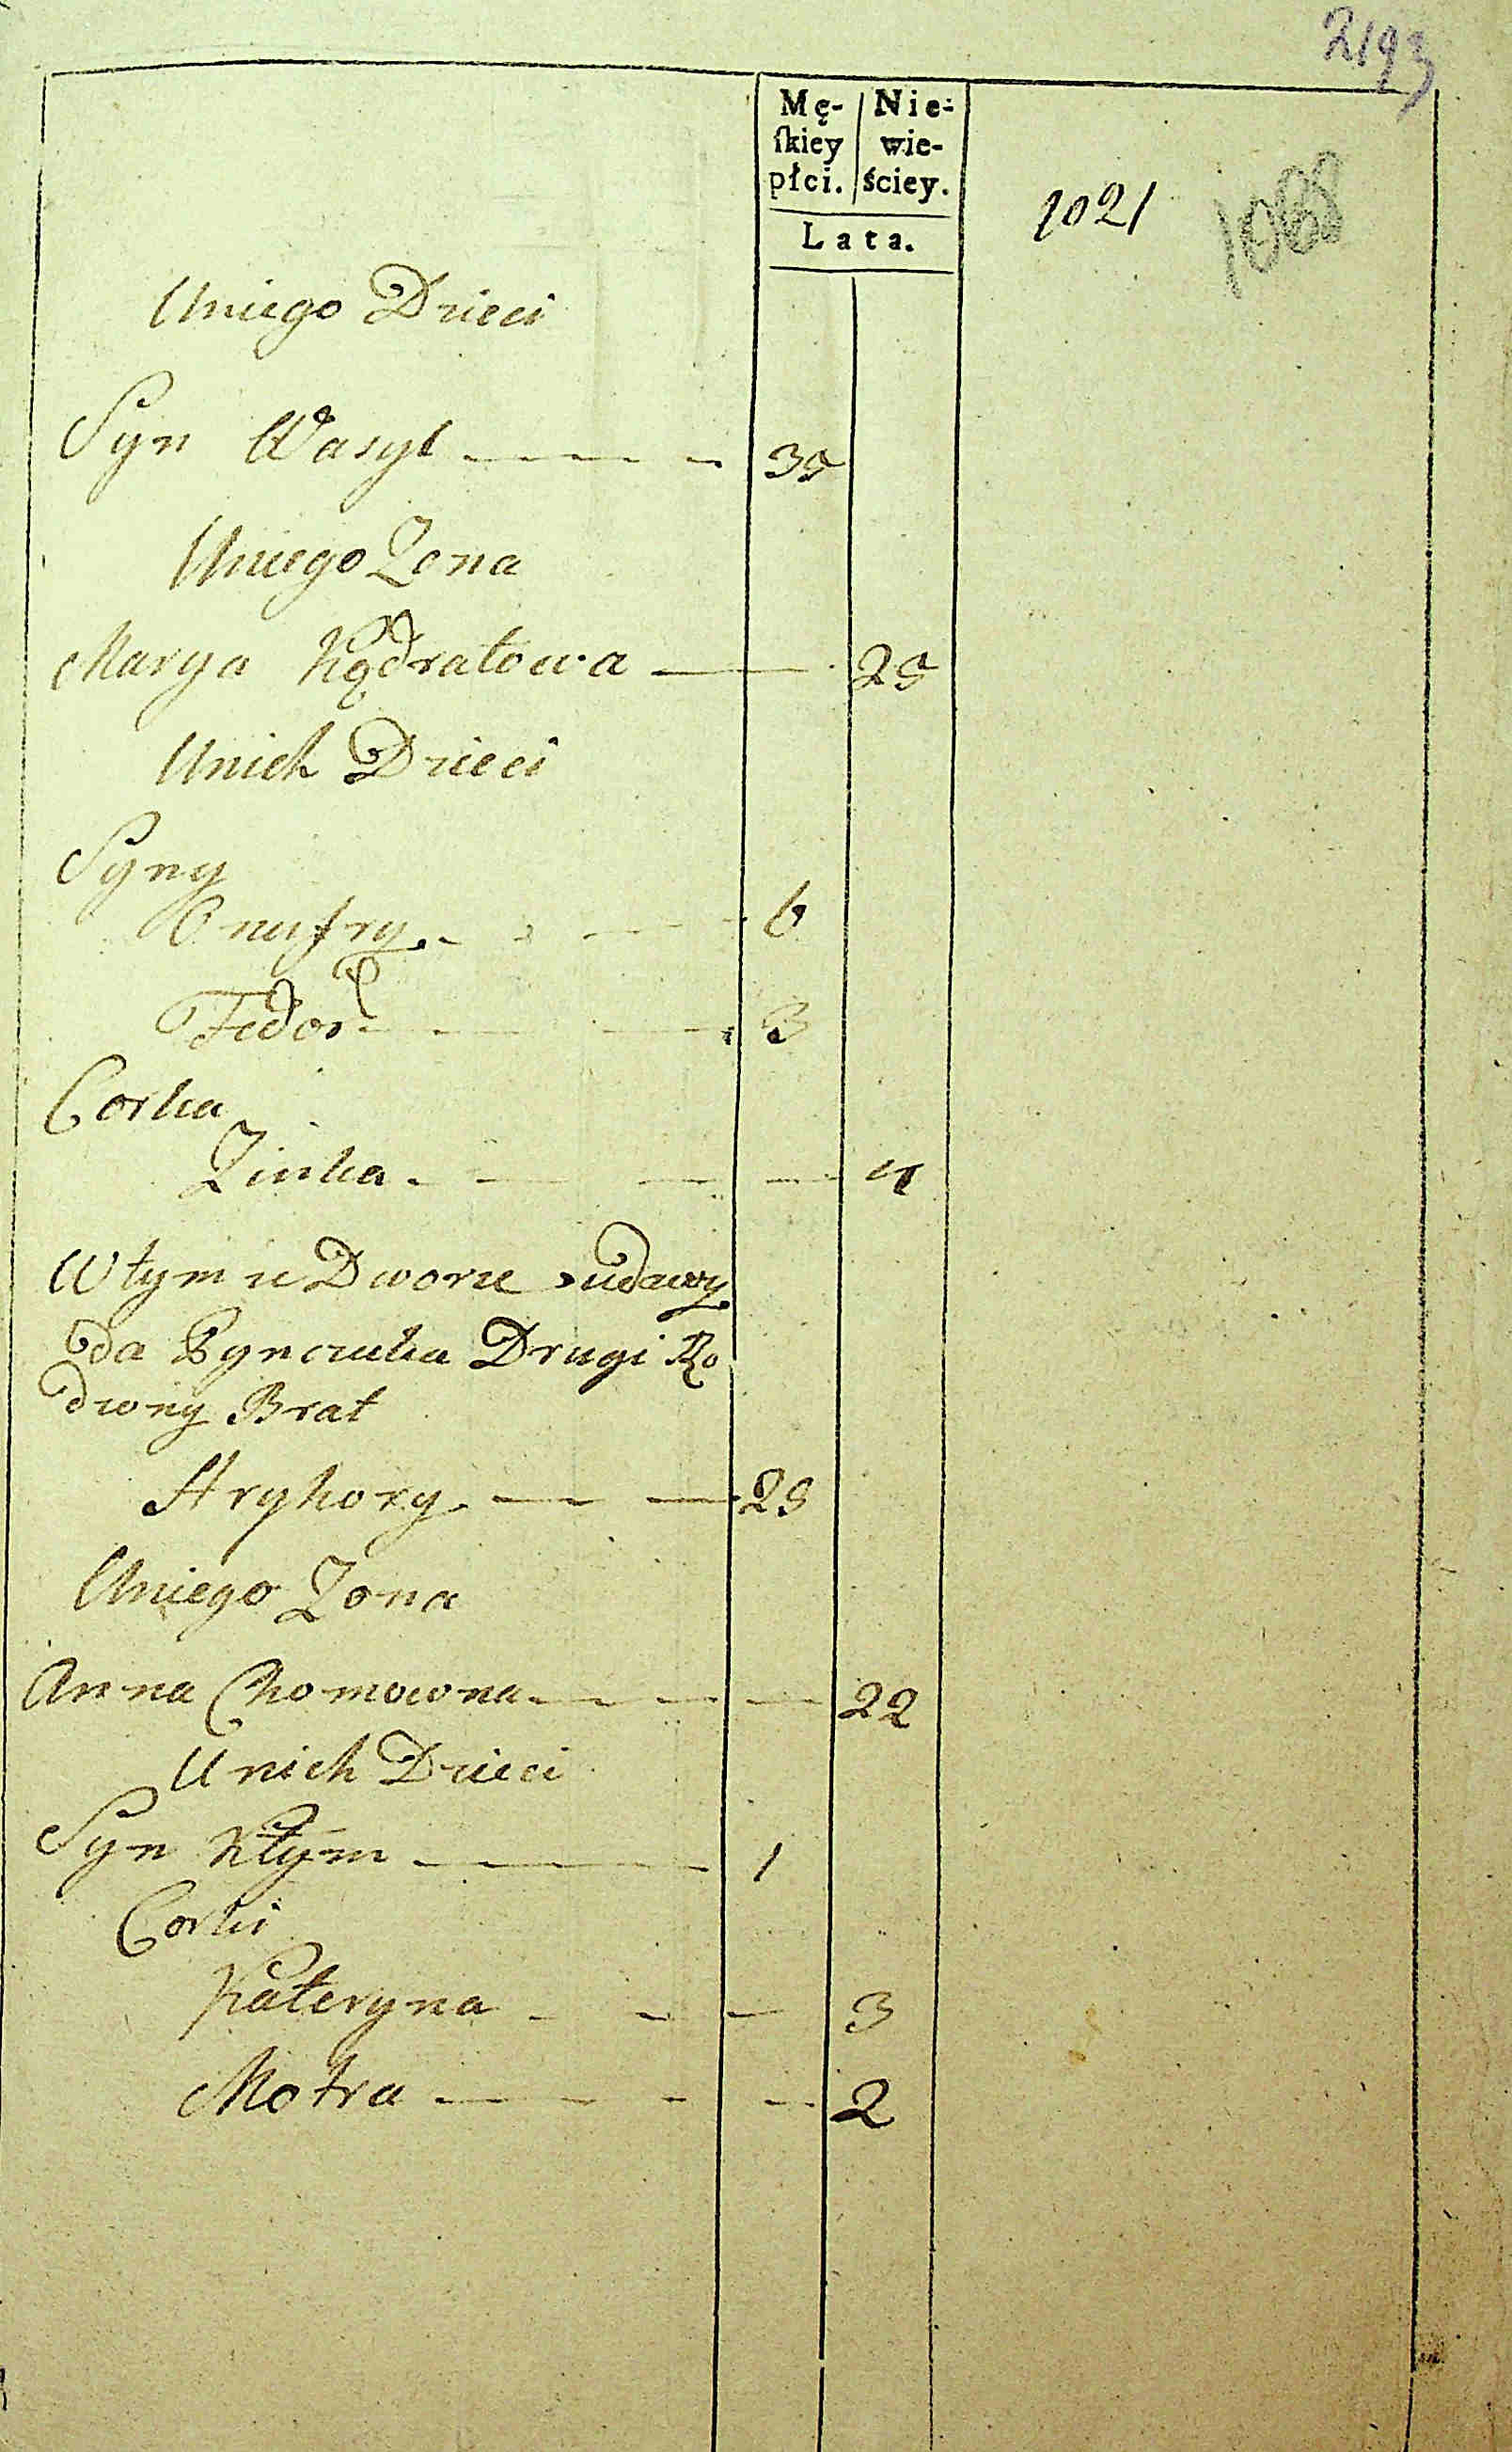 2193
Mę- Nie-
ſkiey wie-
płci. ściey.
Lata.
1021 1068
Uniego Dzieci
Syn Wasyl 35
Uniego Zona
Marya Kądratowa 25
Unich Dzieci
Syny
Onufry 6
Fedor 3
Corka
Zinka 4
W tym ze Dworze
da Drugi Ro
dzony Brat
Hryhory 25
Uniego Zona
Anna Chomowna 22
Unich Dzieci
Syn Kłym 1
Corki
Kateryna 3
Motra 2